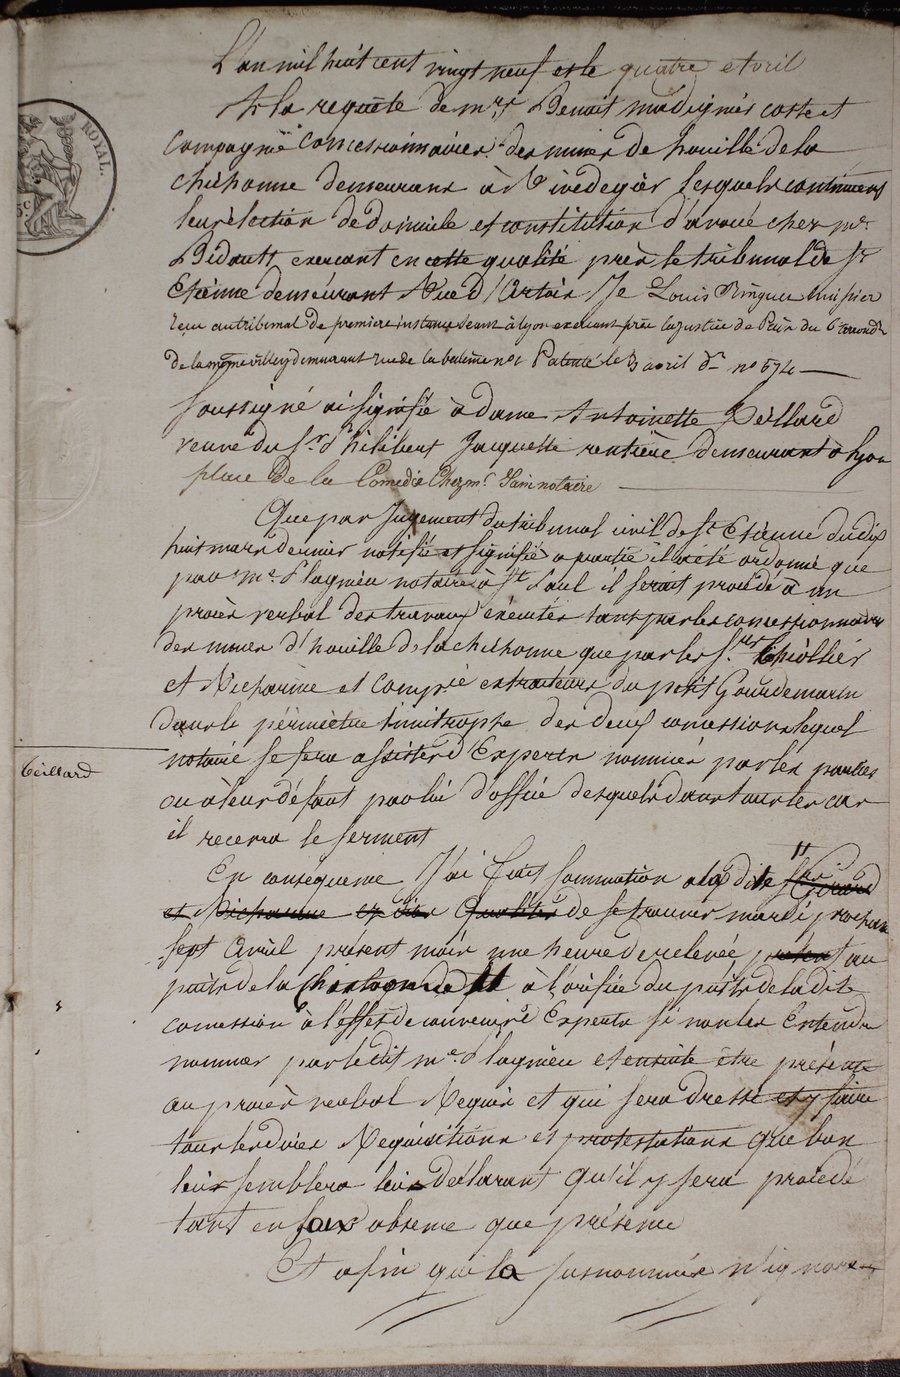 L'an mil huit cent vingt neuf et le quatre avril
A la requête de mrs Benoit madignié coste et
compagnie concessionnaires des mines de houille de la
chichonne demeurans à Rivedegier lesquels continuent
leur élection de domicile et constitution d'avoué chez me
Bidault exercant en cette qualité près le tribunal de St
Etienne demeurant Rue d'Artois Je Louis Ringuet huissier
recu au tribunal de premiere instance seant à lyon exercant près la justice de Paix du 6e arrondt
de la même ville y demeurant rue de la baleine no 1 Patenté le 3 avril dr no 574
Soussigné ai signifié à dame Antoinette Teillard
veuve du Sr Philibert Jaquette rentière demeurant à Lyon
place De la Comédie Chez mr notaire
Que par Jugement du tribunal civil de St Etienne du dix
huit mars dernier notifié et signifié a partie il a été ordonné que
par me Plagnieu notaire à St Paul il serait procédé à un
procès verbal des travaux exécutés tant par les concessionnaires
des mines d'houille de la chichonne que par les Srs Thiollier
et Micharme et compie extracteurs du petit Gourdemarin
dans le périmètre limitrophe des deux concessions lequel
notaire se fera assister d'Experts nommés par les parties
ou à leur défaut par lui d'office desquels dans tous les cas
il recevra le serment
Teillard
En conséquence J'ai fait sommation a la dite
et Micharme es dites qualités de se trouver mardi prochain
sept avril présent mois une heure de relevée présent au
puits de la à l'orifice du puits de la dite
concession à l'effet de convenir d'Experts si non les Entendre
nommer par ledit me Plagnieu et ensuite être présent
au procès verbal Requis et qui sera dressé et y faire
tous les dires Requisitions et protestations que bon
leur semblera leur déclarant qu'il y sera procédé
tant en sa absence que présence
Et afin que la susnommée n'ignore
ROYAL.